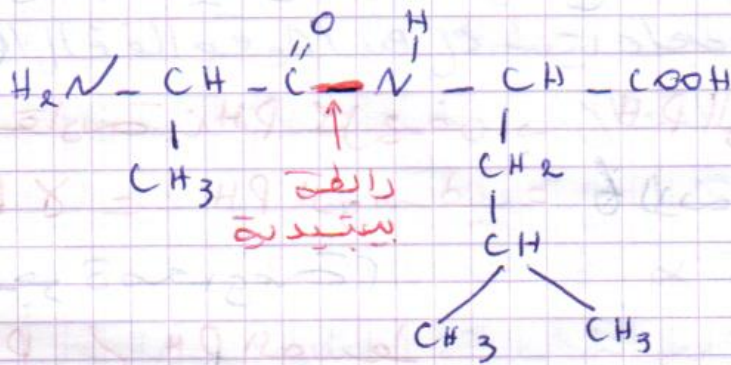 O H
H2N - CH - C - N - CH - COOH
CH3 رابطة CH2
بيبتيدية CH
CH3 CH3